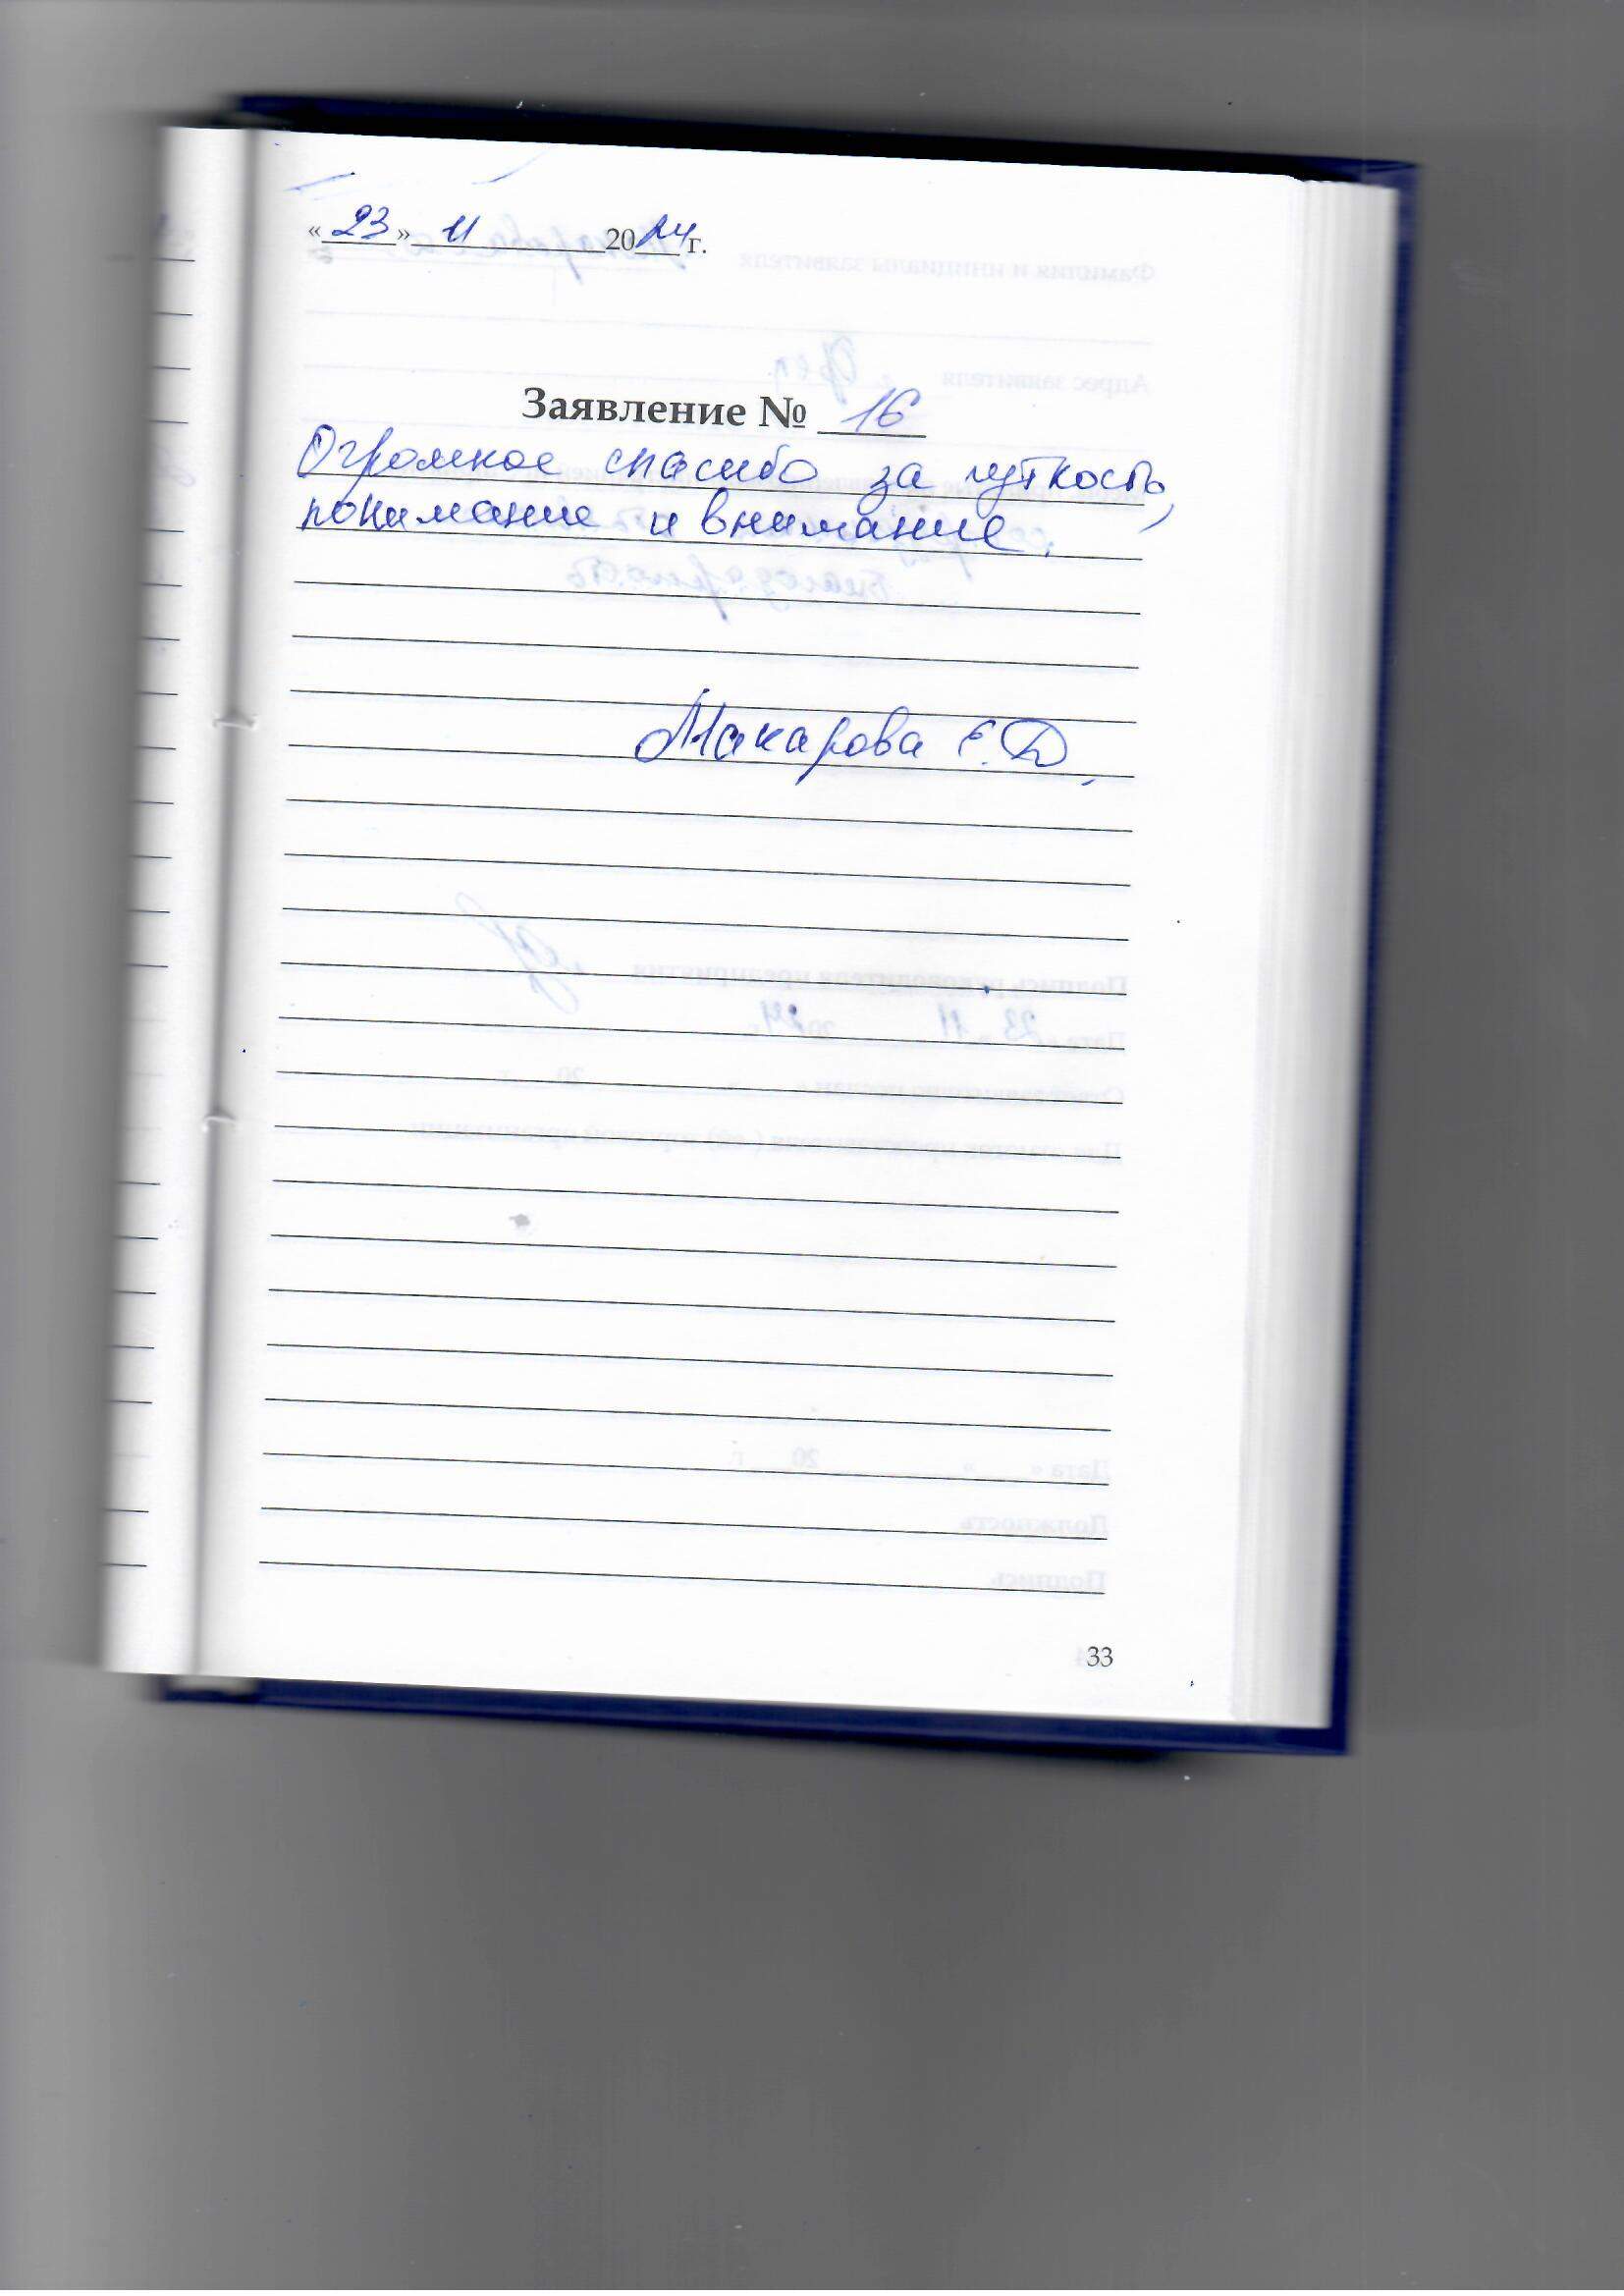 «23» 11 2024 г.
Заявление № 16
Огромное спасибо за чуткость,
понимание и внимание.
Макарова Е.Д.
33